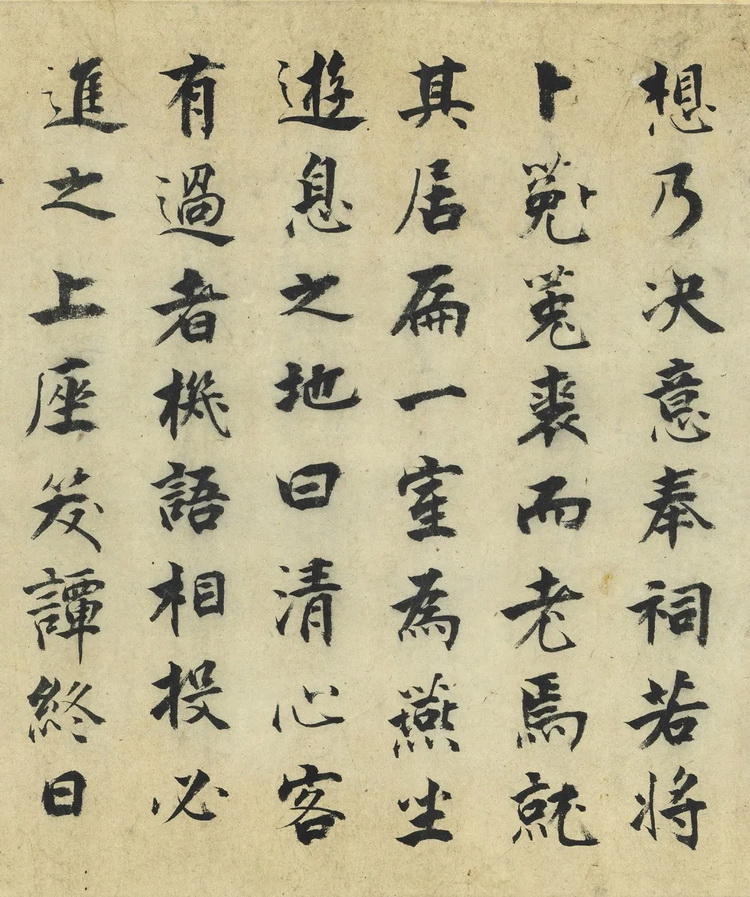 想乃决意奉祠若將
卜菟菟裘而老焉就
其居扁一室為燕坐
遊息之地曰清心客
有過者機語相投必
進之上座笑譚終日